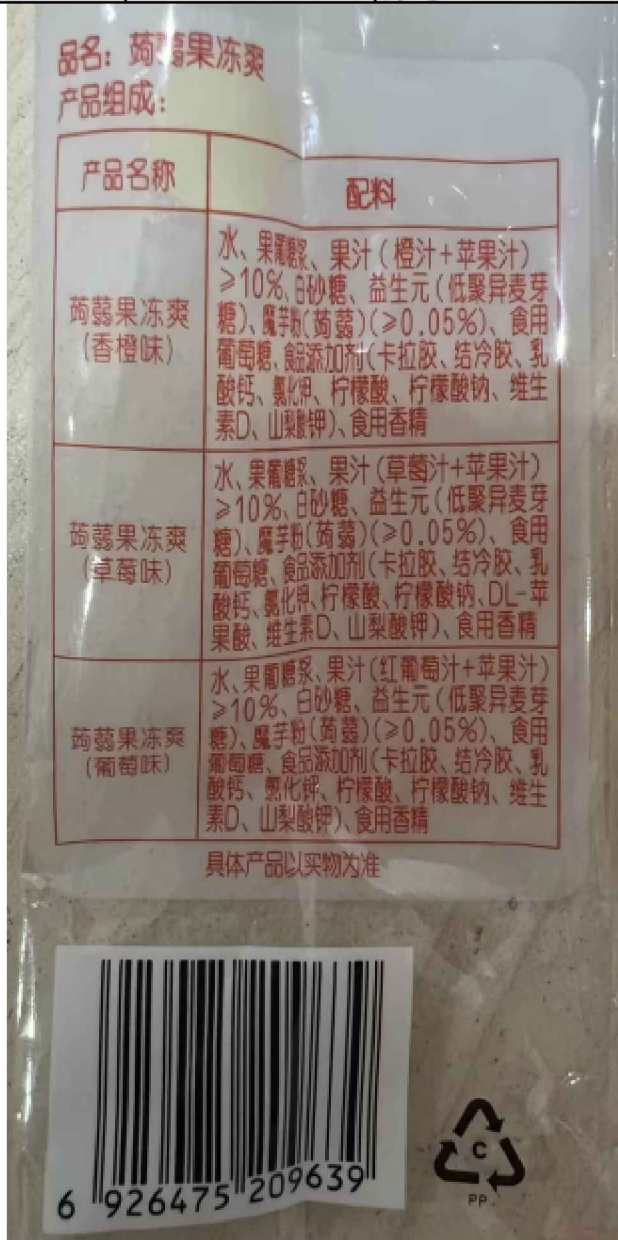 品名：蒟蒻果冻爽
产品组成：
产品名称
配料
蒟蒻果冻爽
(香橙味)
水、果葡糖浆、果汁(橙汁+苹果汁)
≥10%、白砂糖、益生元(低聚异麦芽
糖)、魔芋粉(蒟蒻)(≥0.05%)、食用
葡萄糖、食品添加剂(卡拉胶、结冷胶、乳
酸钙、氯化钾、柠檬酸、柠檬酸钠、维生
素D、山梨酸钾)、食用香精
蒟蒻果冻爽
(草莓味)
水、果葡糖浆、果汁(草莓汁+苹果汁)
≥10%、白砂糖、益生元(低聚异麦芽
糖)、魔芋粉(蒟蒻)(≥0.05%)、食用
葡萄糖、食品添加剂(卡拉胶、结冷胶、乳
酸钙、氯化钾、柠檬酸、柠檬酸钠、DL-苹
果酸、维生素D、山梨酸钾)、食用香精
蒟蒻果冻爽
(葡萄味)
水、果葡糖浆、果汁(红葡萄汁+苹果汁)
≥10%、白砂糖、益生元(低聚异麦芽
糖)、魔芋粉(蒟蒻)(≥0.05%)、食用
葡萄糖、食品添加剂(卡拉胶、结冷胶、乳
酸钙、氯化钾、柠檬酸、柠檬酸钠、维生
素D、山梨酸钾)、食用香精
具体产品以实物为准
6 926475 209639
C
PP